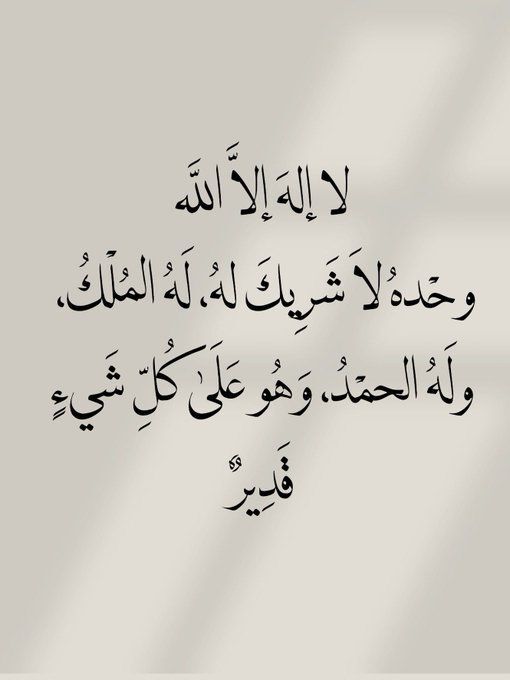 لا إلهَ إلاَّ اللَّه
وحْدهُ لاَ شَرِيكَ لهُ، لَهُ المُلْكُ،
ولَهُ الحمْدُ، وَهُو عَلَىٰ كُلِّ شَيءٍ
قَدِيرٌ